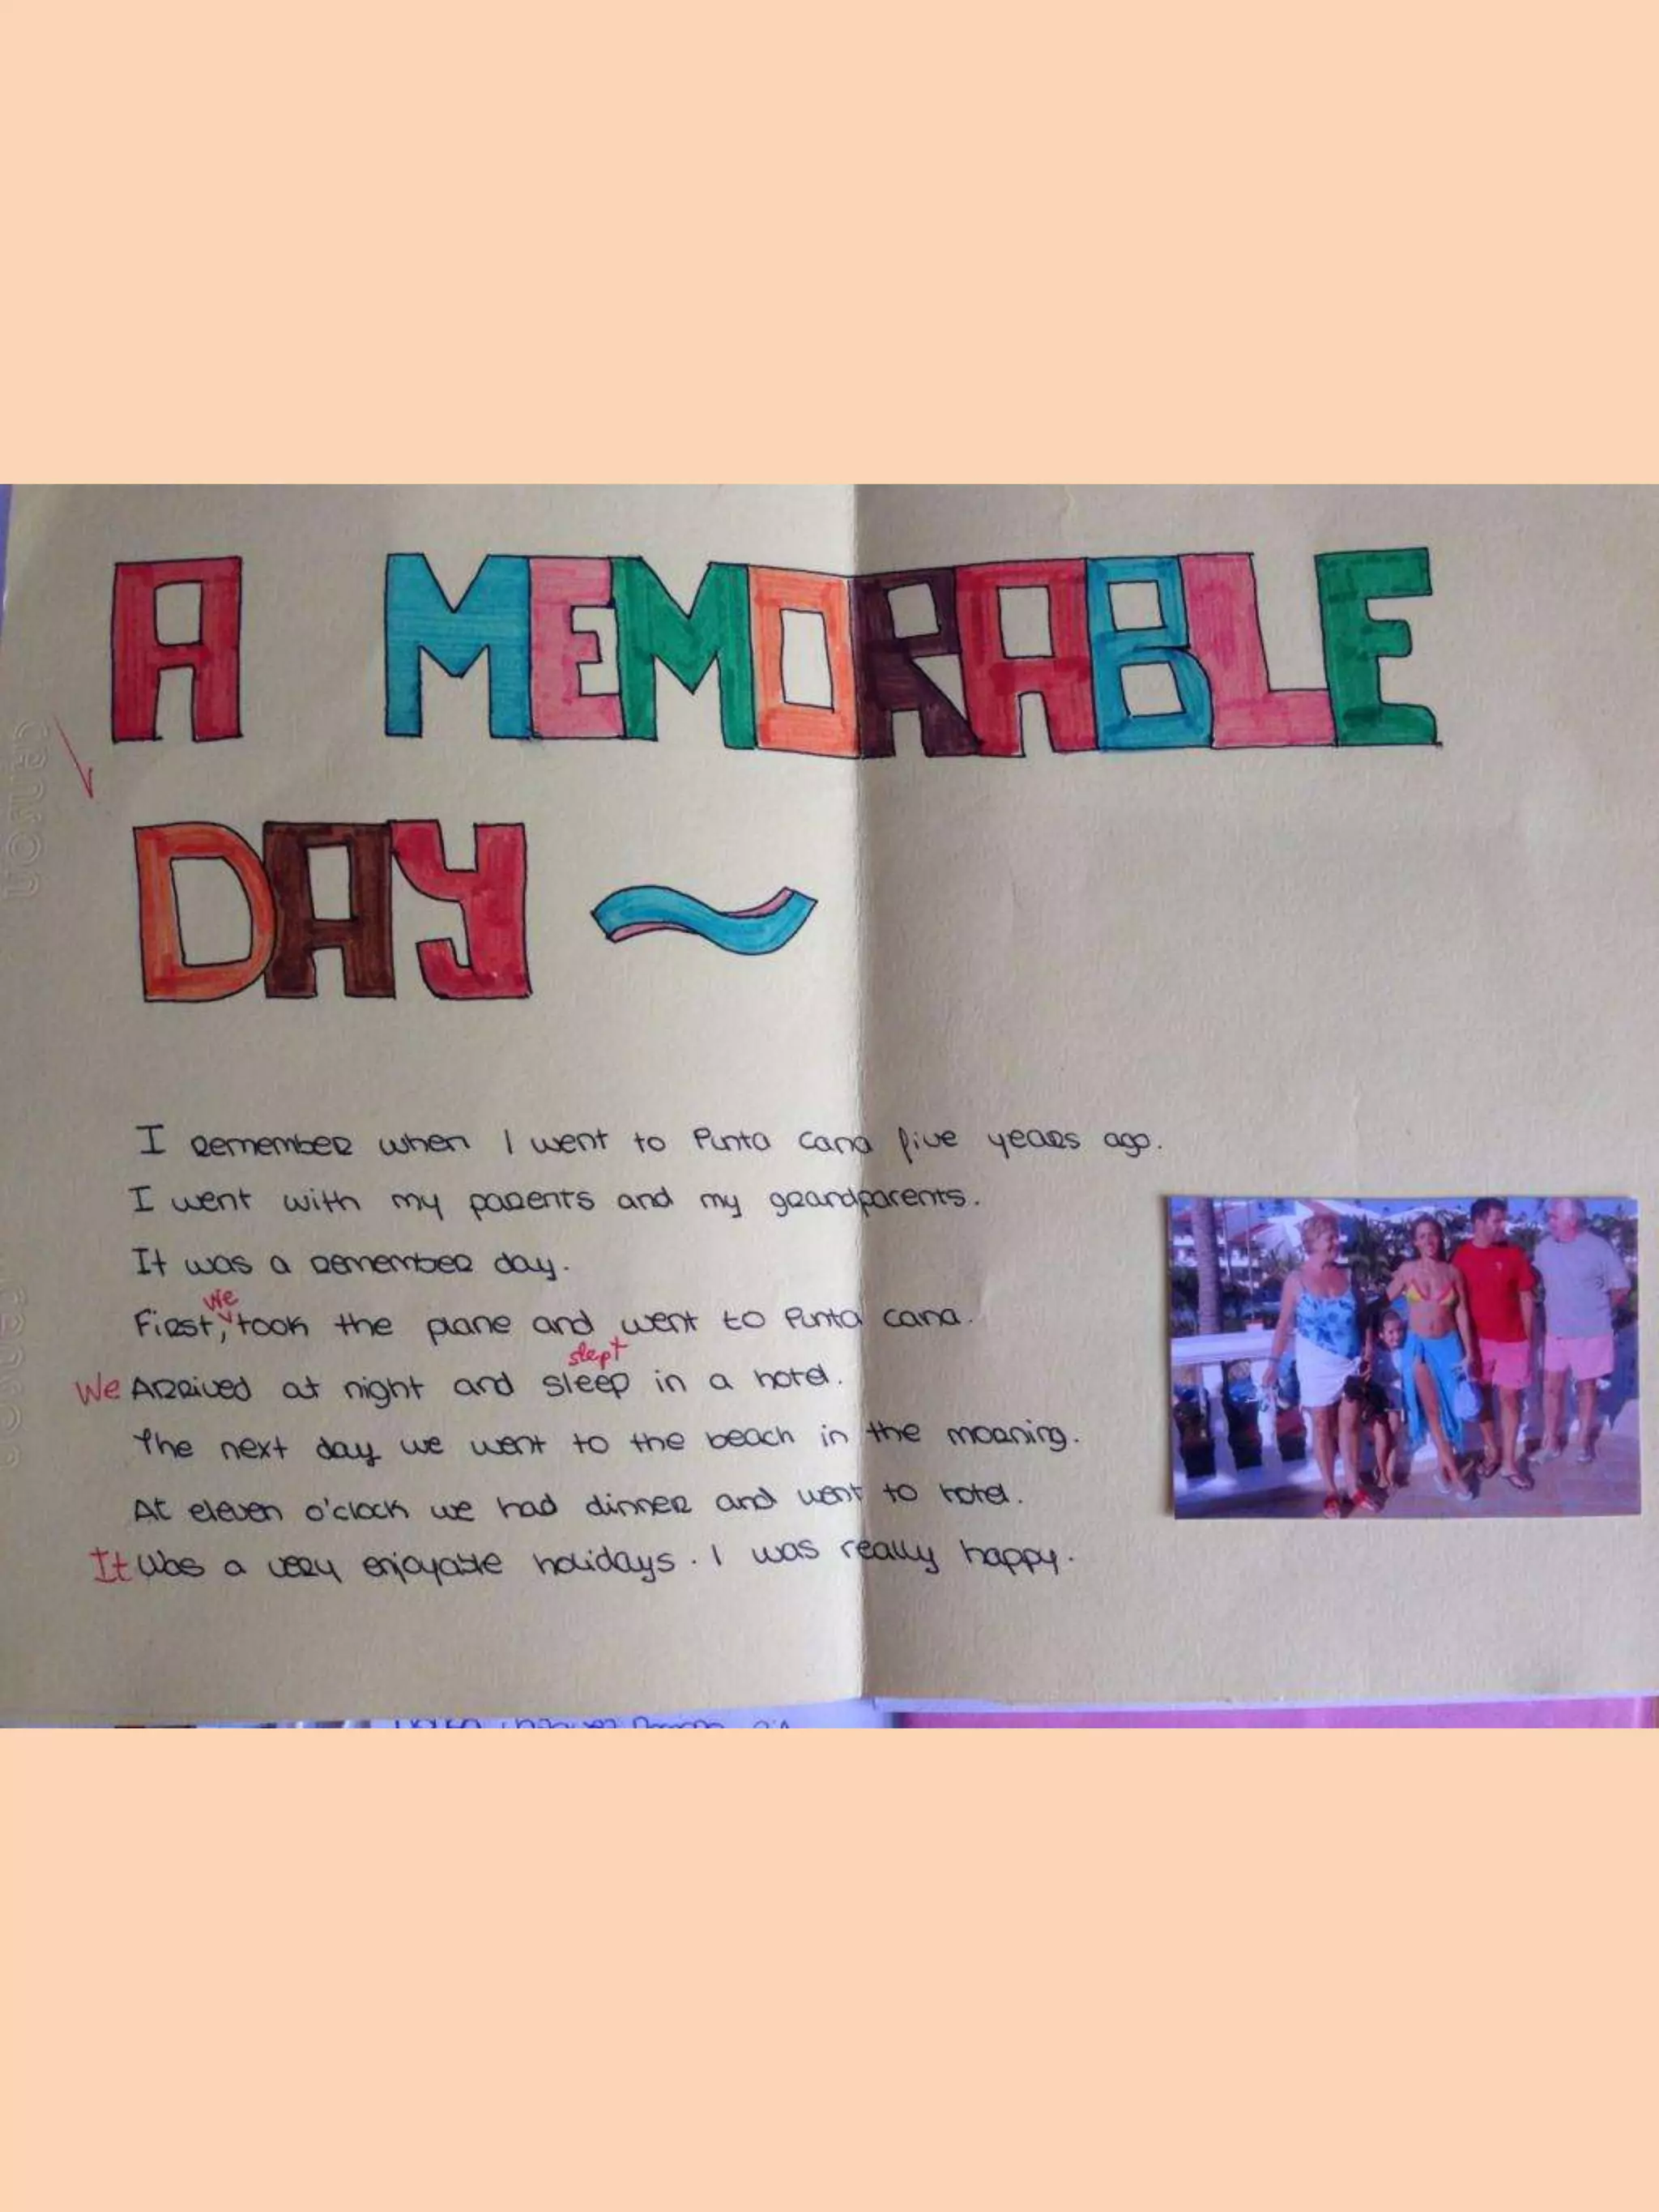 A MEMORABLE
DAY ~
I remember when I went to Punta cana five years ago.
I went with my parents and my grandparents.
It was a remember day.
First, we took the plane and went to Punta cana.
slept
We Arrived at night and sleep in a hotel.
The next day we went to the beach in the morning.
At eleven o'clock we had dinner and went to hotel.
It Was a very enjoyable holidays. I was really happy.
CANSON